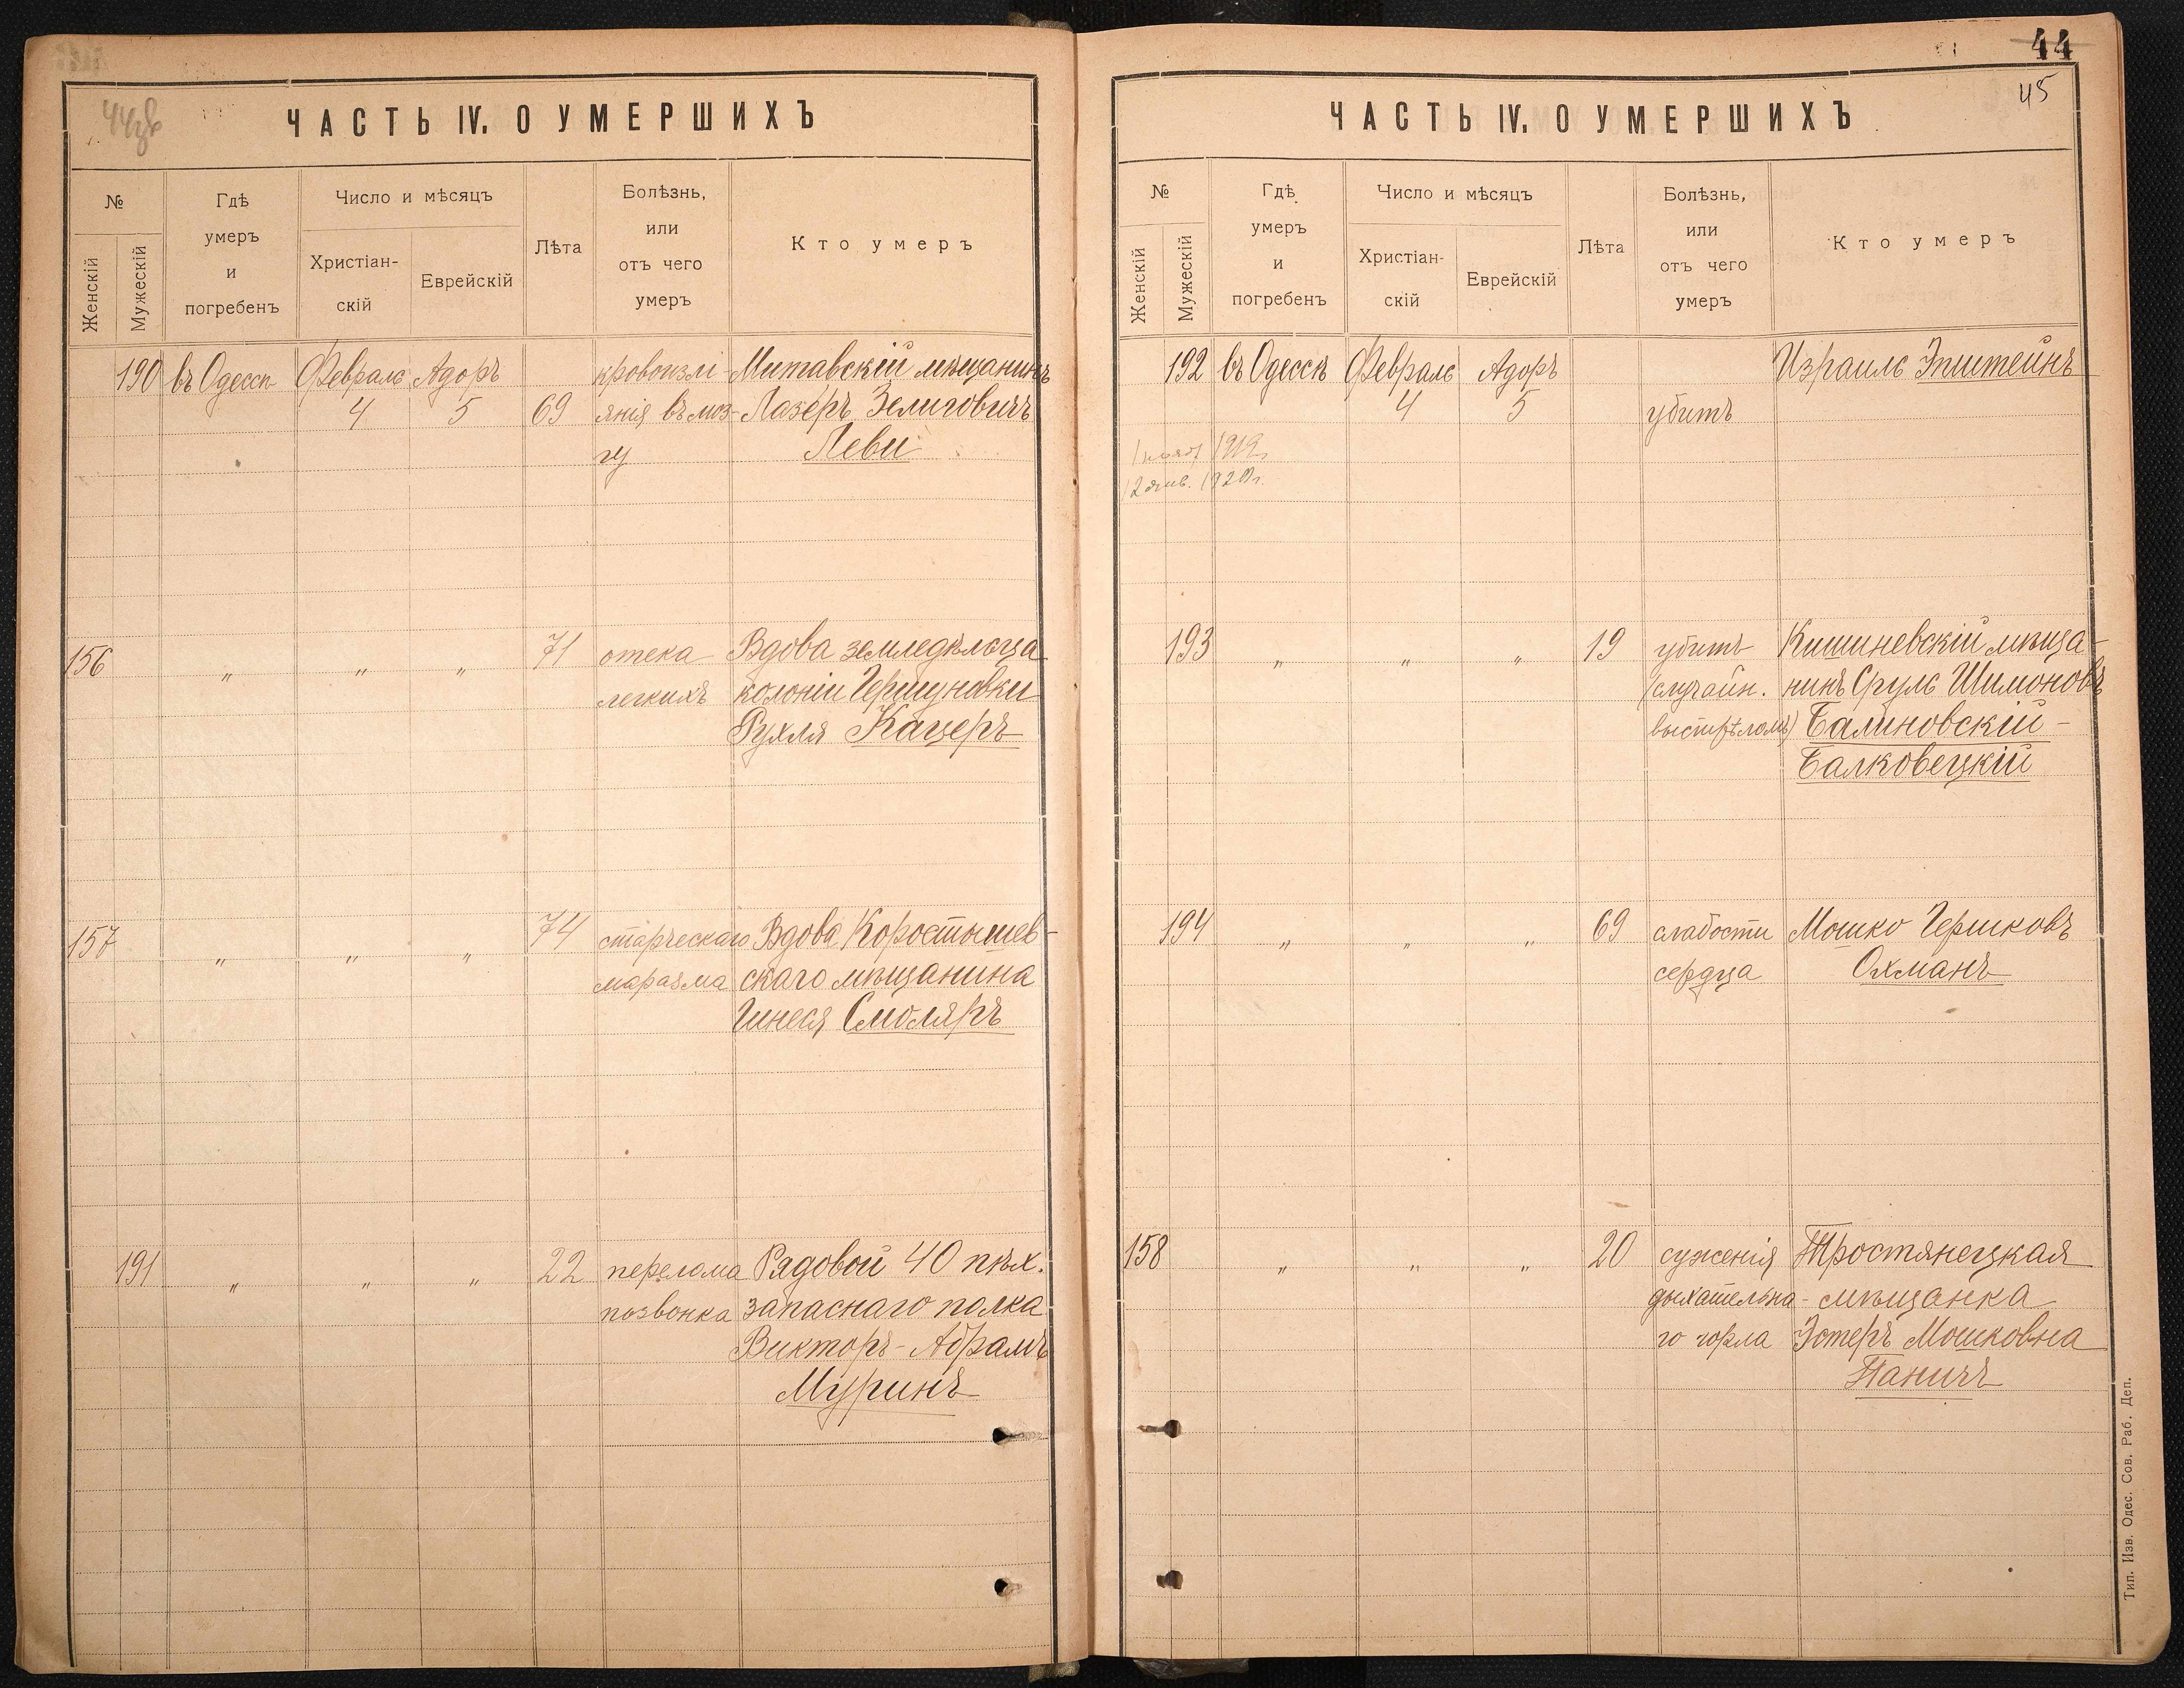 ЧАСТЬ IV. О УМЕРШИХЪ
№
Женскій
Мужескій
Гдѣ
умеръ
и
погребенъ
Число и мѣсяцъ
Христіан-
скій
Еврейскій
Лѣта
Болѣзнь,
или
отъ чего
умеръ
Кто умеръ
190 въ Одессѣ Февраль Адоръ кровоизлі- Митавскій мѣщанинъ
4 5 69 янія въ моз- Лазеръ Зелиговичъ
гу Леви
156 " " " 71 отека Вдова земледѣльца
легкихъ колоніи Гершуновки
Рухля Кацеръ
157 " " " 74 старческаго Вдова Коростышев-
маразма скаго мѣщанина
Гинеся Смоляръ
191 " " " 22 перелома Рядовой 40 пѣх.
позвонка запаснаго полка
Викторъ-Абрамъ
Муринъ
44
45
ЧАСТЬ IV. О УМЕРШИХЪ
№
Женскій
Мужескій
Гдѣ
умеръ
и
погребенъ
Число и мѣсяцъ
Христіан-
скій
Еврейскій
Лѣта
Болѣзнь,
или
отъ чего
умеръ
Кто умеръ
192 въ Одессѣ Февраль Адоръ Израиль Эпштейнъ
4 5 убитъ
1919
12 янв. 1920 г.
193 " " " 19 убитъ Кишиневскій мѣща-
(случайн. нинъ Сруль Шимоновъ
выстрѣломъ) Балиновскій-
Балковецкій
194 " " " 69 слабости Мошко Гершковъ
сердца Охманъ
158 " " " 20 суженія Тростянецкая
дыхательна- мѣщанка
го горла Эстеръ Мошковна
Паничъ
Тип. Изв. Одес. Сов. Раб. Деп.